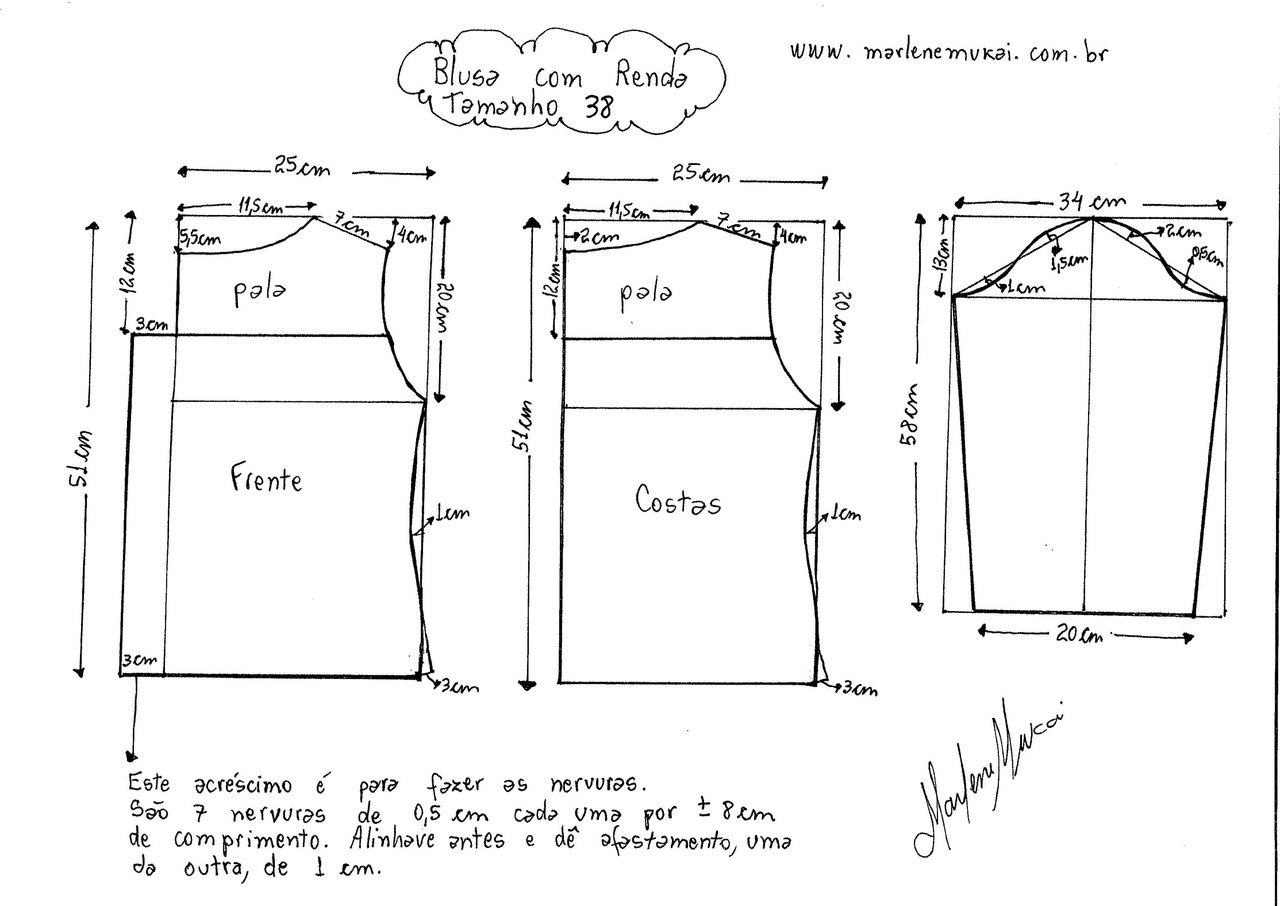 www.marlenemukai.com.br
Blusa com Renda
Tamanho 38
25cm
11,5cm
7cm
5,5cm
4cm
12cm
pala
20cm
3cm
51cm
Frente
1cm
3cm
3cm
25cm
11,5cm
7cm
2cm
4cm
12cm
pala
20cm
51cm
Costas
1cm
3cm
34cm
13cm
2cm
1,5cm
0,5cm
1cm
58cm
20cm
Este acréscimo é para fazer as nervuras.
São 7 nervuras de 0,5 cm cada uma por ± 8cm
de comprimento. Alinhave antes e dê afastamento, uma
da outra, de 1 cm.
Marlene Mukai